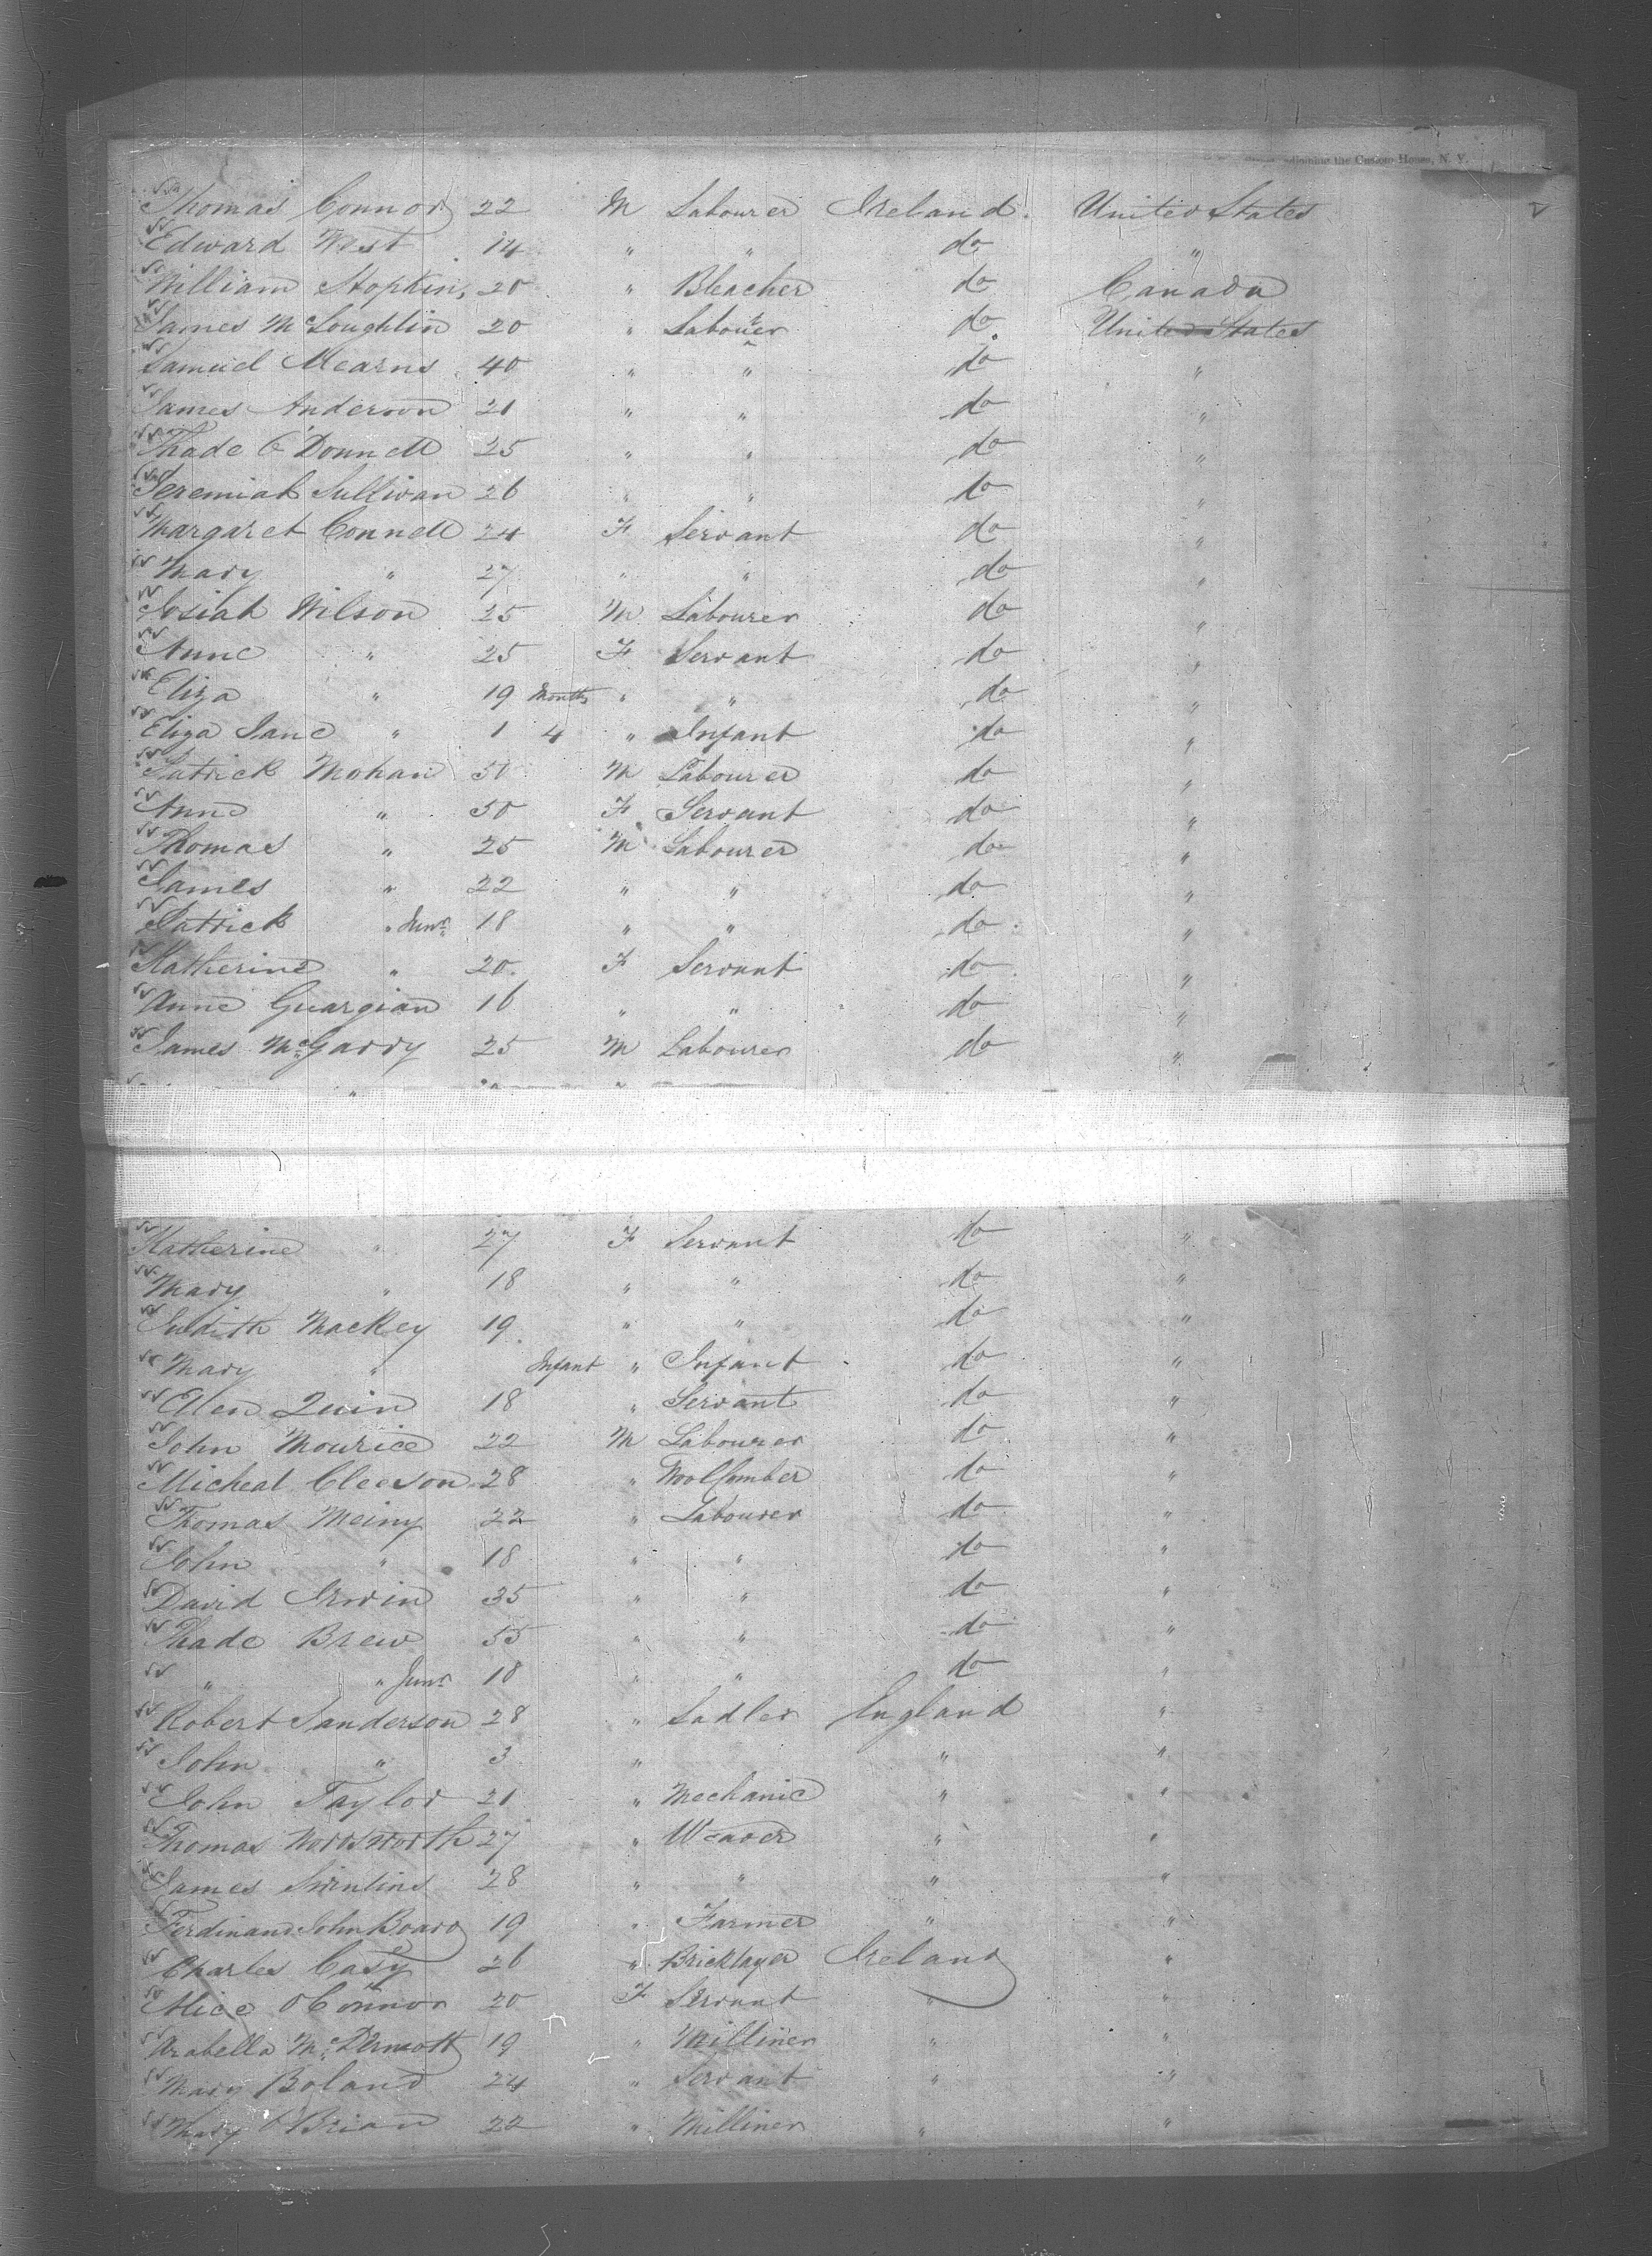 adjoining the Custom House, N. Y.
Thomas Connor 22 M Labourer Ireland United States
Edward West 14 " " do "
William Hopkins 20 " Bleacher do Canada
James McLoughlin 20 " Labourer do United States
Samuel Mearns 40 " " do "
James Anderson 21 " " do "
Thade O'Donnell 25 " " do "
Jeremiah Sullivan 26 " " do "
Margaret Connell 24 F Servant do "
Mary " 27 " " do "
Josiah Wilson 25 M Labourer do "
Anne " 25 F Servant do "
Eliza " 19 Months " " do "
Eliza Jane " 1 4 " Infant do "
Patrick Mohan 50 M Labourer do "
Anne " 50 F Servant do "
Thomas " 25 M Labourer do "
James " 22 " " do "
Patrick " Junr 18 " " do "
Katherine " 20 F Servant do "
Anne Guargian 16 " " do "
James McGarry 25 M Labourer do "
"
Katherine " 27 F Servant do "
Mary " 18 " " do "
Judith Mackey 19 " " do "
Mary " Infant " Infant do "
Ellen Quin 18 " Servant do "
John Mourice 22 M Labourer do "
Micheal Cleeson 28 " Wool Comber do "
Thomas Meiny 22 " Labourer do "
John " 18 " " do "
David Irwin 35 " " do "
Thade Brew 55 " " do "
" " Junr 18 " " do "
Robert Sanderson 28 " Sadler England "
John " 3 " " "
John Taylor 21 " Mechanic " "
Thomas Wordsworth 27 " Weaver " "
James 28 " " " "
Ferdinand John Board 19 " Farmer " "
Charles Casey 26 " Bricklayer Ireland "
Alice O'Connor 20 F Servant " "
Arabella McDermott 19 " Milliner " "
Mary Boland 24 " Servant " "
Mary O'Brian 22 " Milliner " "